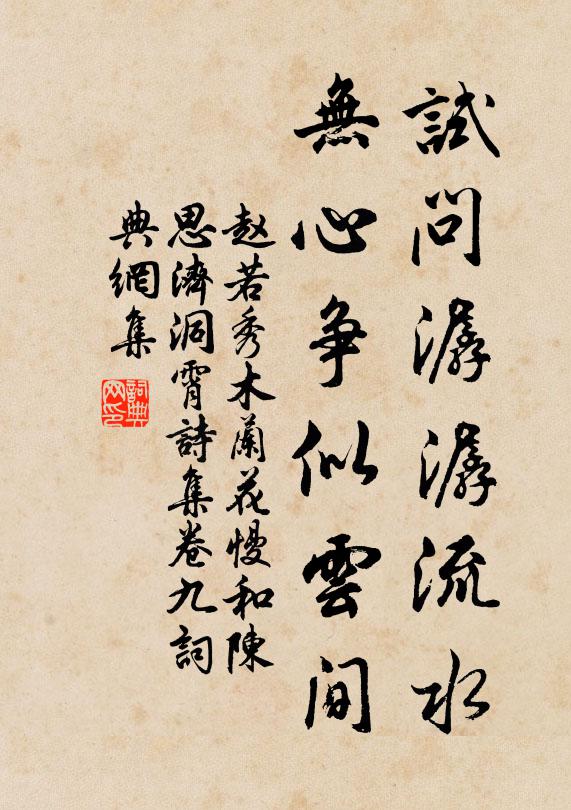 試問潺潺流水
無心争似雲間
赵若秀木蘭花慢和陳
思濟洞霄詩集卷九詞
典網集
詞典网印